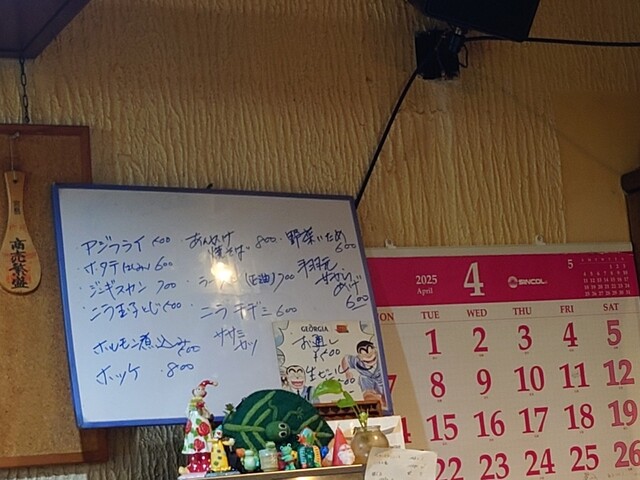 商売繁盛
アジフライ 500
ホタテ 600
ジンギスカン 700
ニラ玉子とじ 500
ホルモン煮込み 500
ホッケ 800
あんかけ
焼そば 800
ラーメン (正油) 700
ニラチヂミ 600
ササミ
カツ
野菜いため
600
600
GEORGIA
お通し
生ビール
2025
April
4
SINCOL
5
MON TUE WED THU FRI SAT
1 2 3 4 5
7 8 9 10 11 12
15 16 17 18 19
22 23 24 25 26